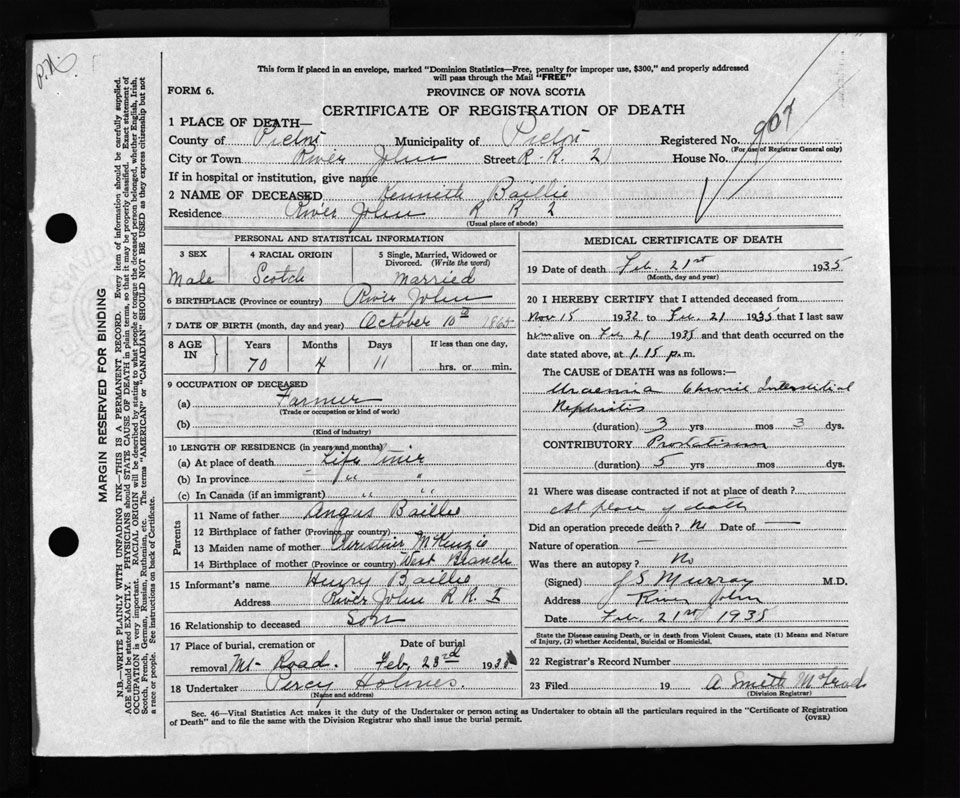 P.N.
This form if placed in an envelope, marked "Dominion Statistics—Free, penalty for improper use, $300," and properly addressed
will pass through the Mail "FREE"
FORM 6.
PROVINCE OF NOVA SCOTIA
CERTIFICATE OF REGISTRATION OF DEATH
1 PLACE OF DEATH—
County of Pictou Municipality of Pictou Registered No. 907
(For use of Registrar General only)
City or Town River John Street R. R. 2 House No.
If in hospital or institution, give name
2 NAME OF DECEASED Kenneth Baillie
Residence River John R R 2
(Usual place of abode)
PERSONAL AND STATISTICAL INFORMATION
3 SEX
4 RACIAL ORIGIN
5 Single, Married, Widowed or
Divorced. (Write the word)
Male Scotch Married
6 BIRTHPLACE (Province or country) River John
7 DATE OF BIRTH (month, day and year) October 10th 1865
8 AGE IN
Years Months Days If less than one day,
70 4 11 hrs. or min.
9 OCCUPATION OF DECEASED
(a) Farmer
(Trade or occupation or kind of work)
(b)
(Kind of industry)
10 LENGTH OF RESIDENCE (in years and months)
(a) At place of death Life time
(b) In province " "
(c) In Canada (if an immigrant) " "
Parents
11 Name of father Angus Baillie
12 Birthplace of father (Province or country)
13 Maiden name of mother Christina McKenzie
14 Birthplace of mother (Province or country) West Branch
15 Informant's name Henry Baillie
Address River John R R. 2
16 Relationship to deceased Son
17 Place of burial, cremation or Date of burial
removal Mt- Road. Feb. 23rd 193
18 Undertaker Percy Holmes.
(Name and address)
MEDICAL CERTIFICATE OF DEATH
19 Date of death Feb. 21st 1935
(Month, day and year)
20 I HEREBY CERTIFY that I attended deceased from
Nov 15 1932 to Feb. 21 1935 that I last saw
him alive on Feb 21 1935 and that death occurred on the
date stated above, at 1.15 p.m.
The CAUSE of DEATH was as follows:—
Uraemia Chronic Interstitial
Nephritis
(duration) 3 yrs mos 3 dys.
CONTRIBUTORY Prostatism
(duration) 5 yrs mos dys.
21 Where was disease contracted if not at place of death?
At place of death
Did an operation precede death? No Date of —
Nature of operation —
Was there an autopsy? No
(Signed) J S Murray M.D.
Address River John
Date Feb. 21st 1935
State the Disease causing Death, or in death from Violent Causes, state (1) Means and Nature
of Injury, (2) whether Accidental, Suicidal or Homicidal.
22 Registrar's Record Number
23 Filed 19 A Smith
(Division Registrar)
Sec. 46—Vital Statistics Act makes it the duty of the Undertaker or person acting as Undertaker to obtain all the particulars required in the "Certificate of Registration
of Death" and to file the same with the Division Registrar who shall issue the burial permit.
(OVER)
MARGIN RESERVED FOR BINDING
N.B.—WRITE PLAINLY WITH UNFADING INK—THIS IS A PERMANENT RECORD. Every item of information should be carefully supplied.
AGE should be stated EXACTLY. PHYSICIANS should STATE CAUSE OF DEATH in plain terms, so that it may be properly classified. Exact statement of
OCCUPATION is very important. RACIAL ORIGIN will be described by stating to what people or tongue the deceased person belonged, whether English, Irish,
Scotch, French, German, Russian, Ruthenian, etc. The terms "AMERICAN" or "CANADIAN" SHOULD NOT BE USED as they express citizenship but not
a race or people. See instructions on back of Certificate.